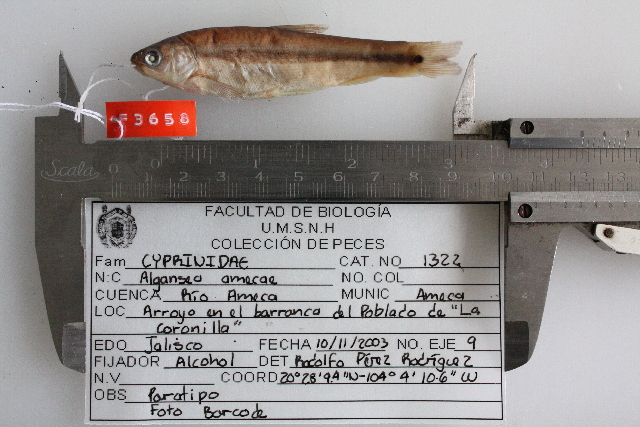 F3658
Scala
0 1 2 3 4
0 1 2 3 4 5 6 7 8 9 10 11 12 13
FACULTAD DE BIOLOGÍA
U.M.S.N.H
COLECCIÓN DE PECES
Fam CYPRINIDAE CAT. NO 1322
N:C Algansea amecae NO. COL
CUENCA Río Ameca MUNIC Ameca
LOC Arroyo en el barranca del Poblado de "La
Coronilla"
EDO Jalisco FECHA 10/11/2003 NO. EJE 9
FIJADOR Alcohol DET Rodolfo Pérez Rodríguez
N.V COORD 20°28'9.4"N-104°4'10.6"W
OBS Paratipo
Foto Barcode